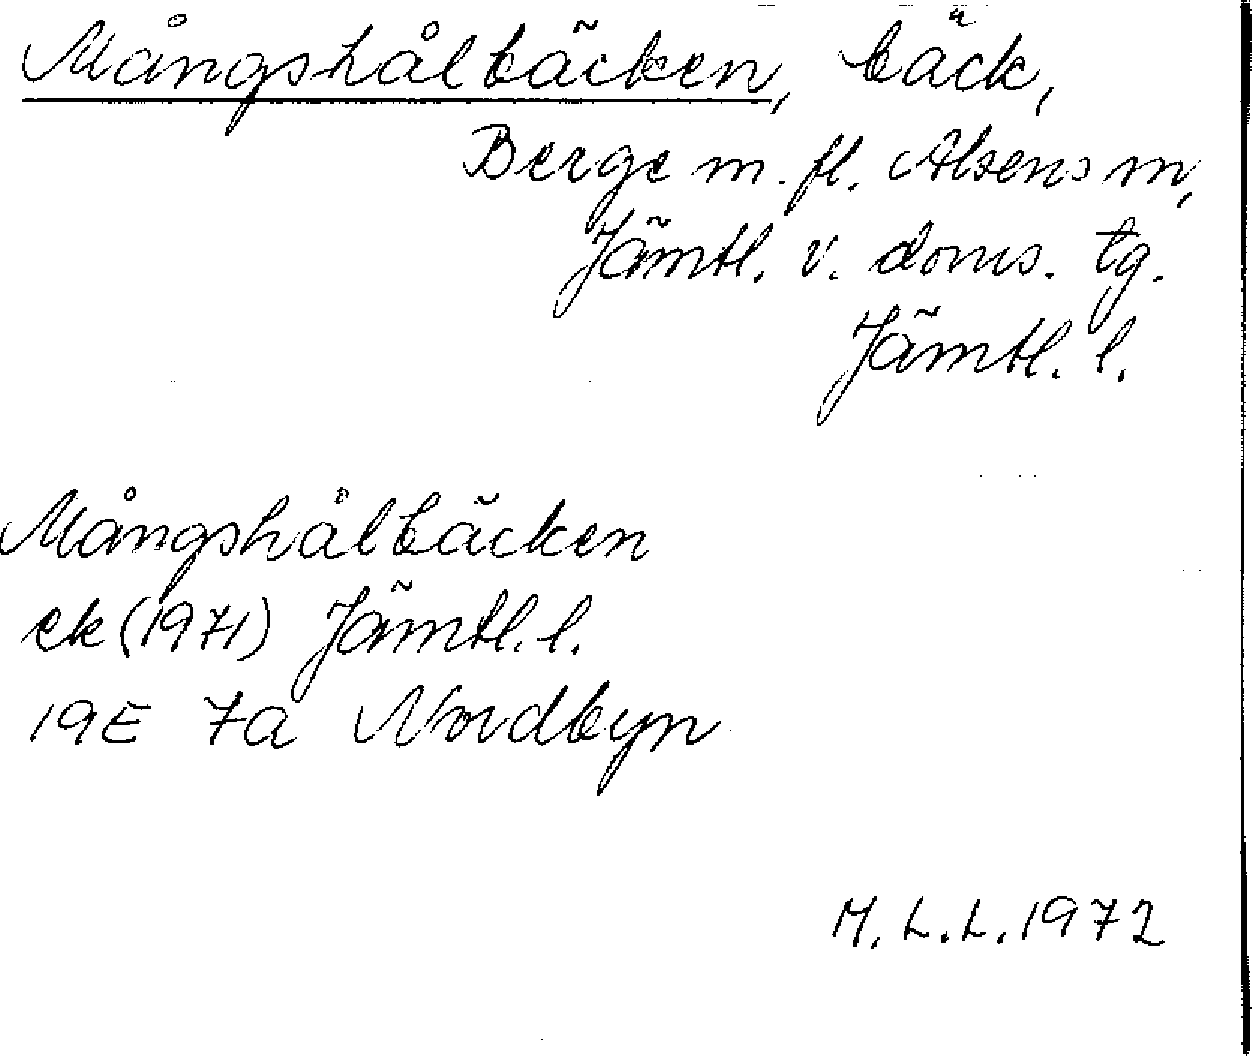 Mångshålbäcken, bäck,
Berge m. fl. Alsens m,
Jämtl. v. doms. tg.
Jämtl. l.
Mångshålbäcken
ek (1971) Jämtl. l.
19E 7a Nordbyn
M. L. L. 1972